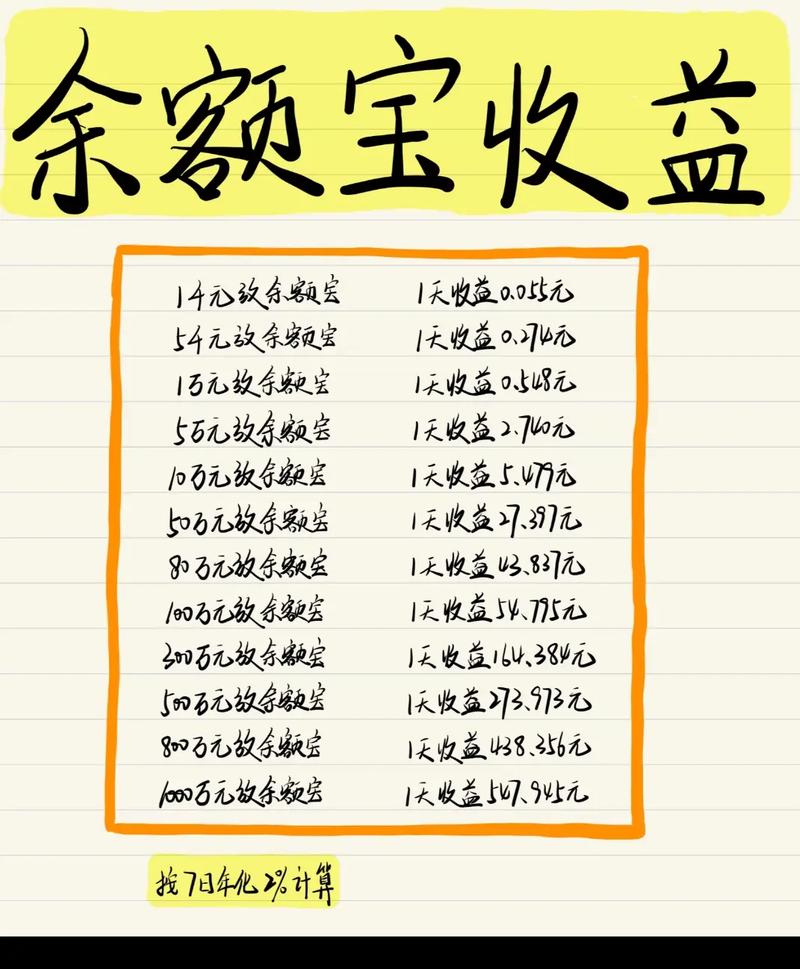 余额宝收益
1千元放余额宝 1天收益0.055元
5千元放余额宝 1天收益0.274元
1万元放余额宝 1天收益0.548元
5万元放余额宝 1天收益2.740元
10万元放余额宝 1天收益5.479元
50万元放余额宝 1天收益27.397元
80万元放余额宝 1天收益43.837元
100万元放余额宝 1天收益54.795元
300万元放余额宝 1天收益164.384元
500万元放余额宝 1天收益273.973元
800万元放余额宝 1天收益438.356元
1000万元放余额宝 1天收益547.945元
按7日年化2%计算